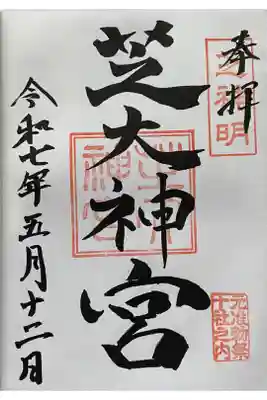 奉拝
芝神明
芝大神宮
元准勅祭
十社之内
令和七年五月十二日